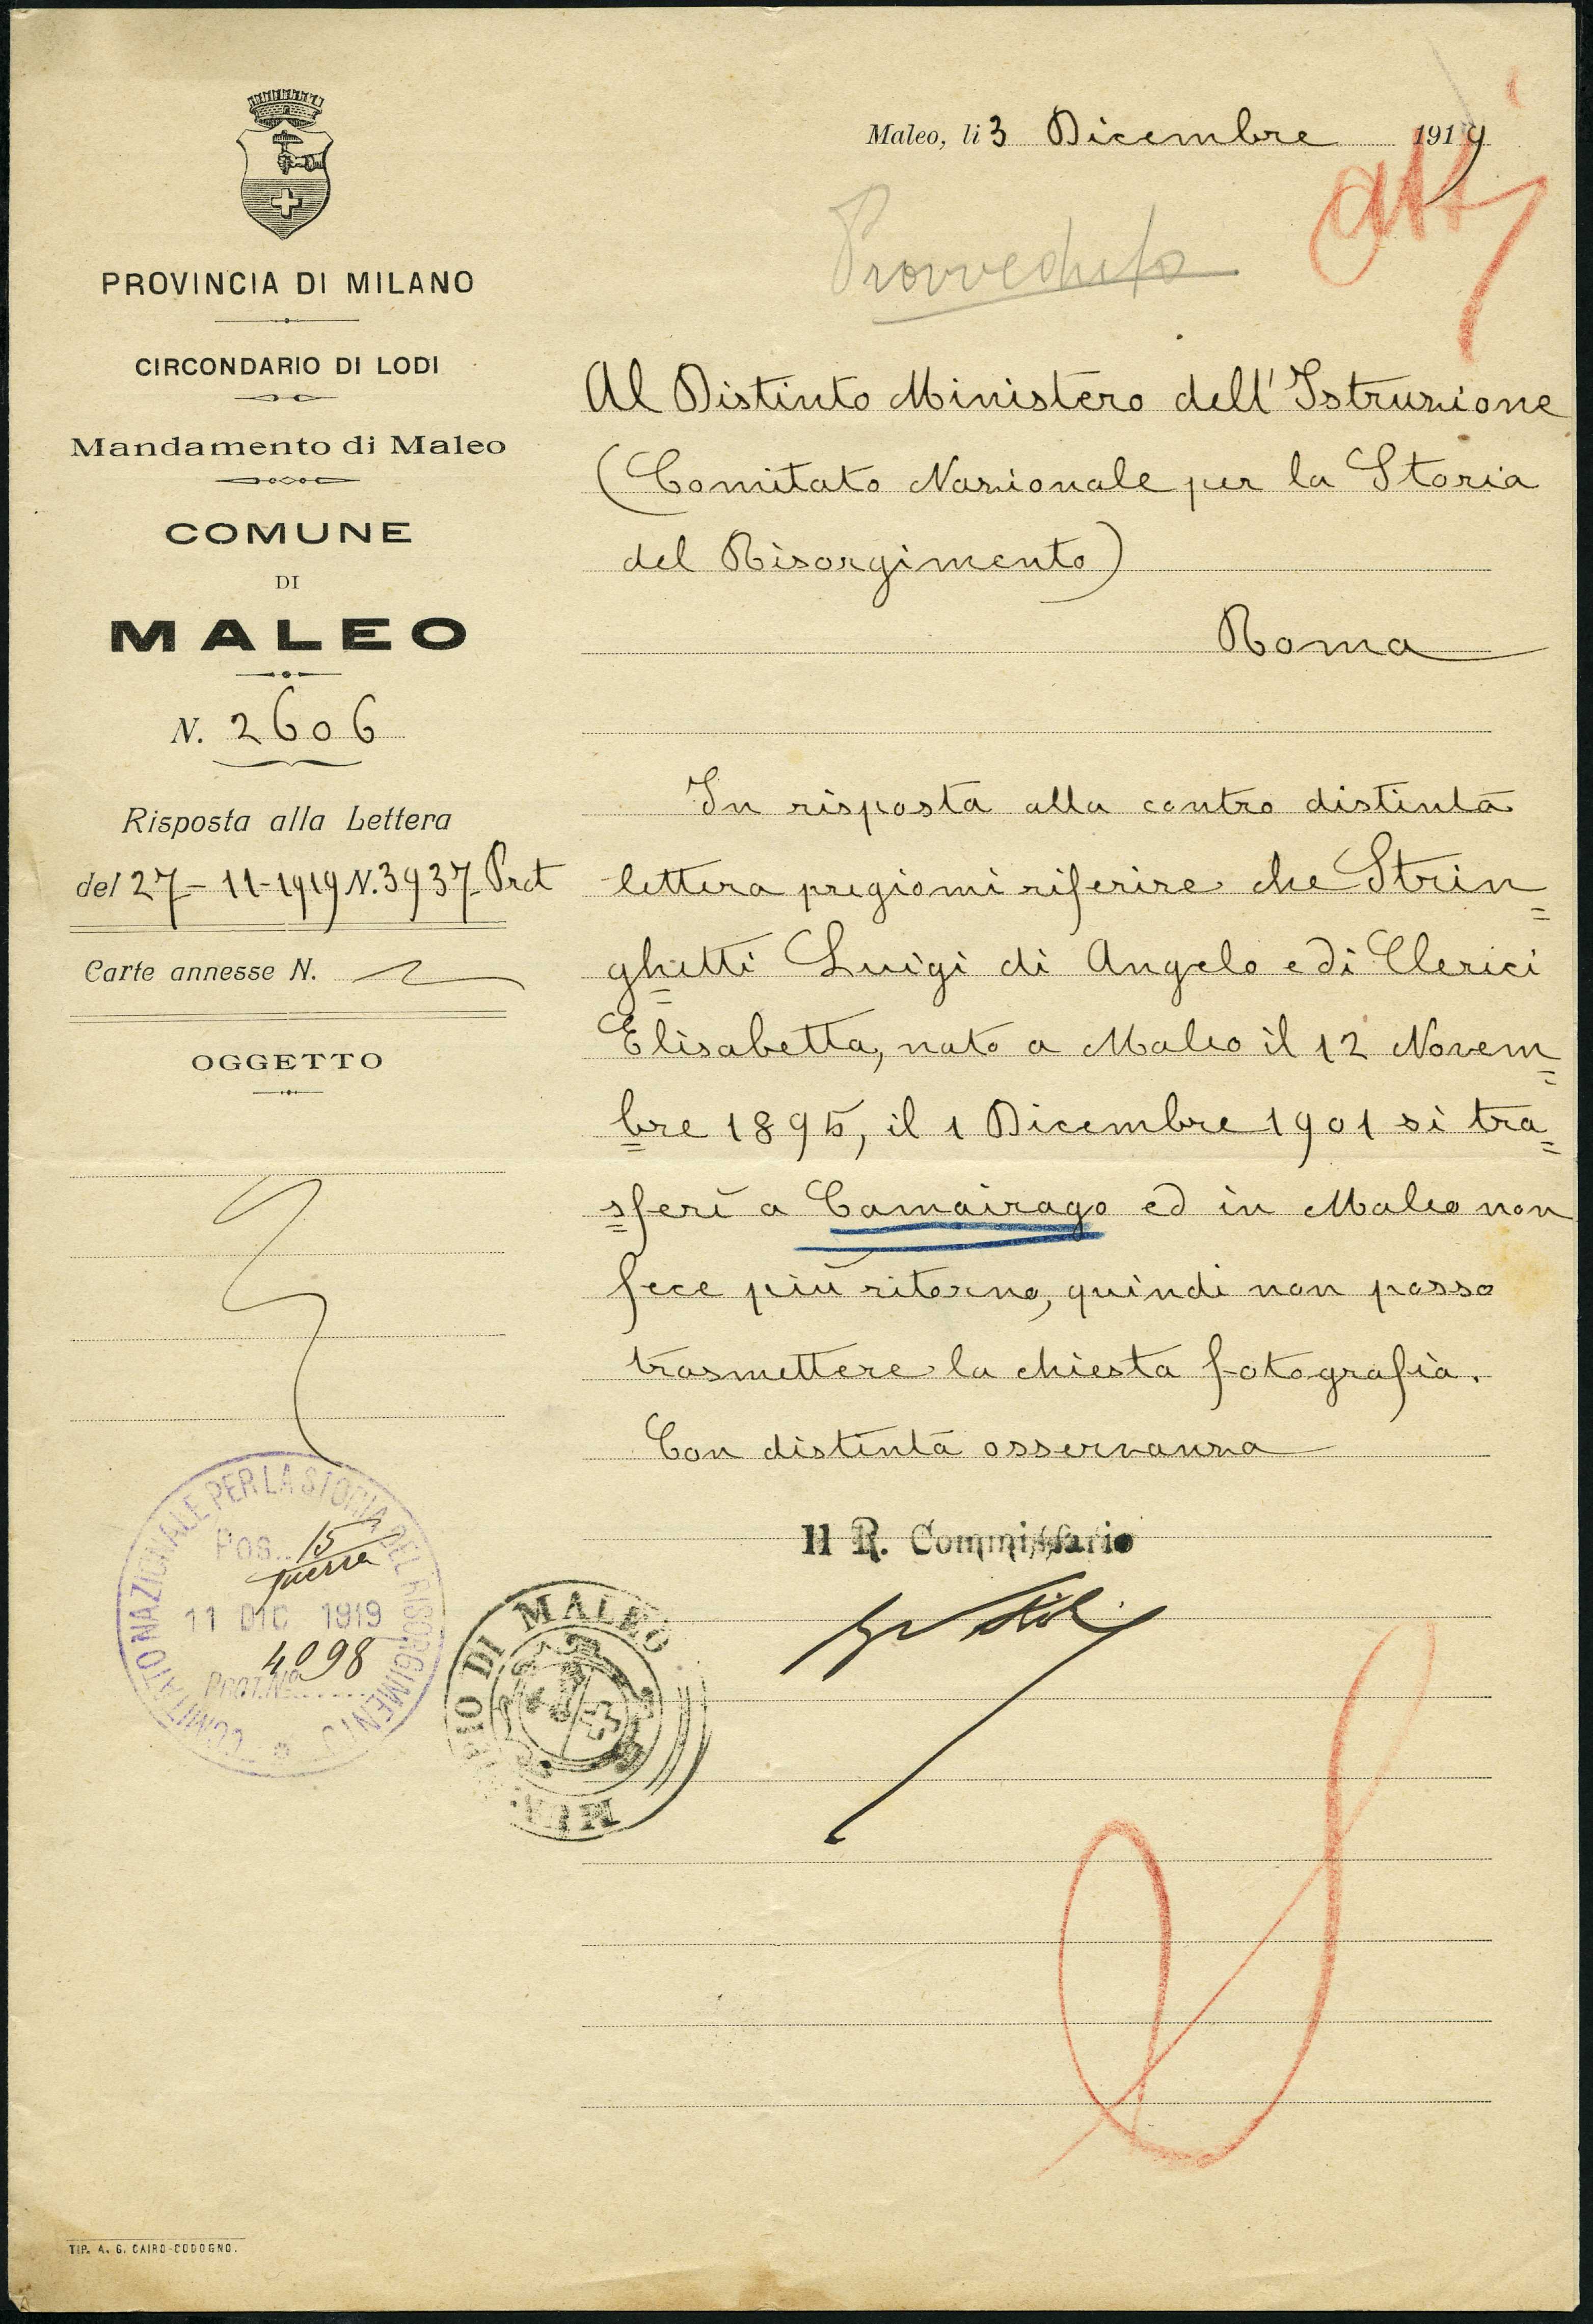 PROVINCIA DI MILANO
CIRCONDARIO DI LODI
Mandamento di Maleo
COMUNE
DI
MALEO
N. 2606
Risposta alla Lettera
del 27-11-1919 N. 3937 Prot
Carte annesse N.
OGGETTO
Maleo, li 3 Dicembre 1919
atti
Provveduto
Al Distinto Ministero dell'Istruzione
(Comitato Nazionale per la Storia
del Risorgimento)
Roma
In risposta alla contro distinta
lettera pregiomi riferire che Strin=
ghetti Luigi di Angelo e di Clerici
Elisabetta, nato a Maleo il 12 Novem=
bre 1895, il 1 Dicembre 1901 si tra=
sferì a Camairago ed in Maleo non
fece più ritorno, quindi non posso
trasmettere la chiesta fotografia.
Con distinta osservanza
Il R. Commissario
COMITATO NAZIONALE PER LA STORIA DEL RISORGIMENTO
Pos. 15
guerra
11 DIC 1919
4098
Prot. No
DI MALEO
TIP. A. G. CAIRO-CODOGNO.